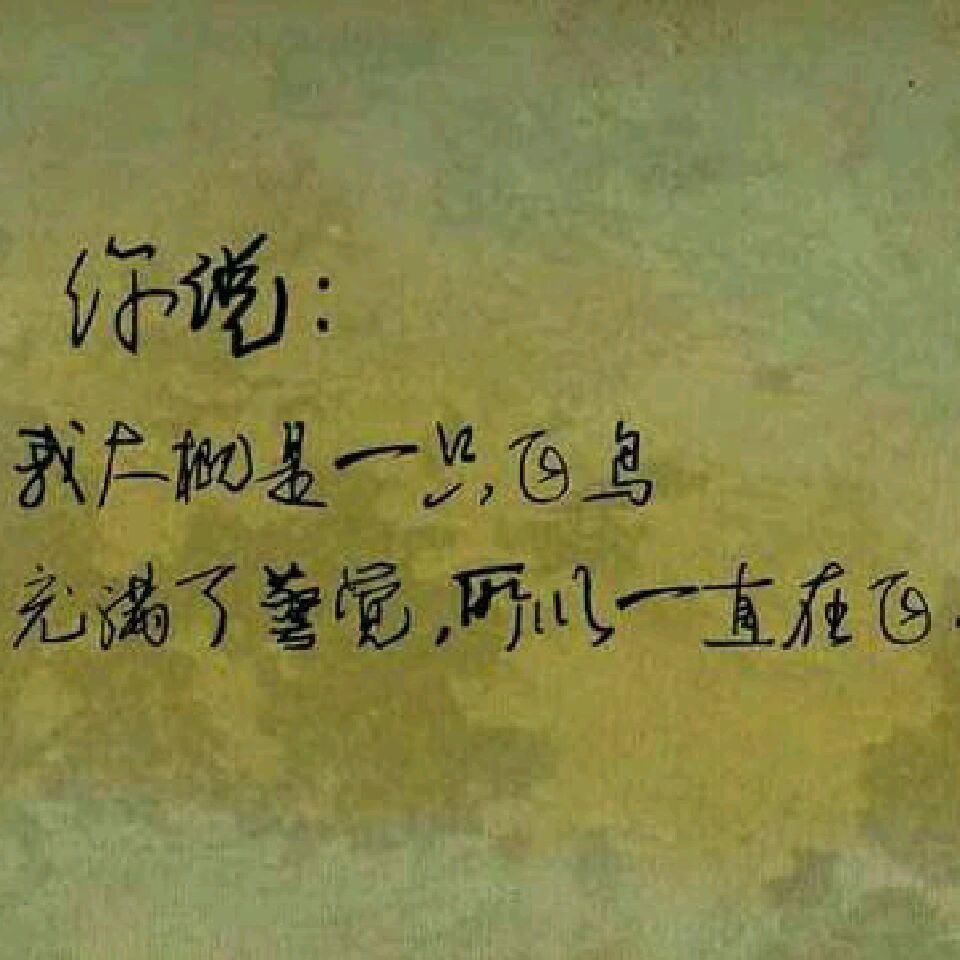 你说：
我大概是一只飞鸟
充满了警觉，所以一直在飞.